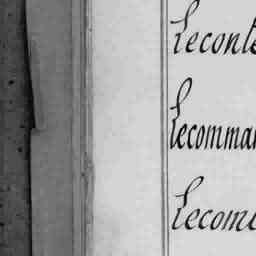 Leconte
Lecomman
Lecomt